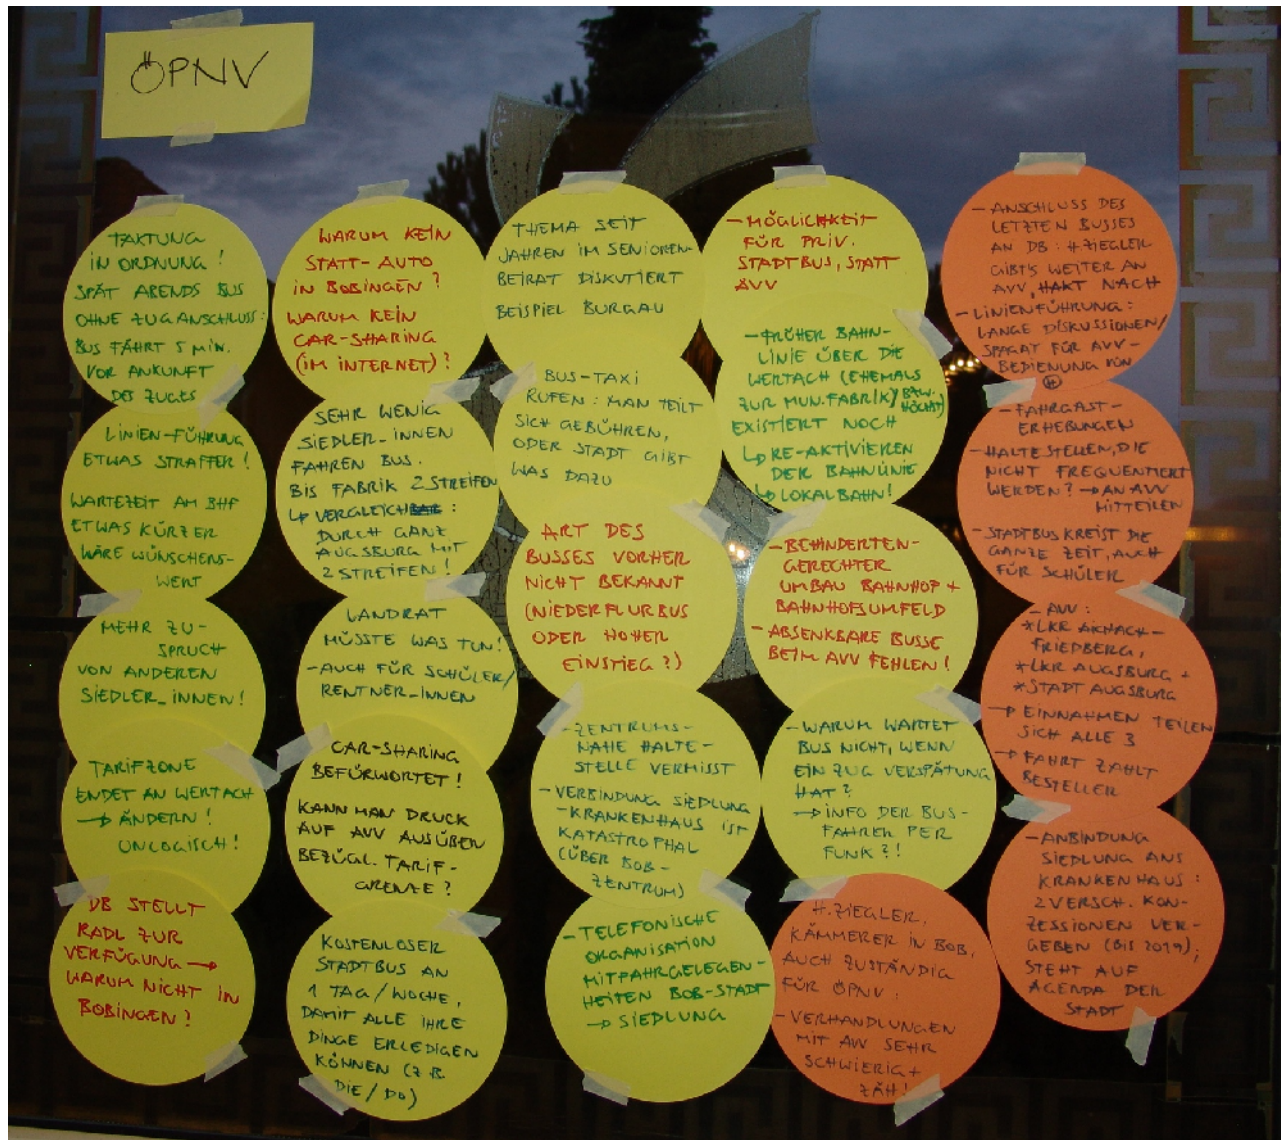 ÖPNV
TAKTUNG
IN ORDNUNG!
SPÄT ABENDS BUS
OHNE ZUGANSCHLUSS:
BUS FÄHRT 5 MIN.
VOR ANKUNFT
DES ZUGES
LINIEN-FÜHRUNG
ETWAS STRAFFER!
WARTEZEIT AM BHF
ETWAS KÜRZER
WÄRE WÜNSCHENS-
WERT
MEHR ZU-
SPRUCH
VON ANDEREN
SIEDLER_INNEN!
TARIFZONE
ENDET AN WERTACH
→ ÄNDERN!
UNLOGISCH!
DB STELLT
RADL ZUR
VERFÜGUNG →
WARUM NICHT IN
BOBINGEN?
WARUM KEIN
STATT-AUTO
IN BOBINGEN?
WARUM KEIN
CAR-SHARING
(IM INTERNET)?
SEHR WENIG
SIEDLER_INNEN
FAHREN BUS.
BIS FABRIK 2 STREIFEN
↳ VERGLEICH :
DURCH GANZ
AUGSBURG MIT
2 STREIFEN!
LANDRAT
MÜSSTE WAS TUN!
- AUCH FÜR SCHÜLER/
RENTNER_INNEN
CAR-SHARING
BEFÜRWORTET!
KANN MAN DRUCK
AUF AVV AUSÜBEN
BEZÜGL. TARIF-
GRENZE?
KOSTENLOSER
STADTBUS AN
1 TAG/WOCHE,
DAMIT ALLE IHRE
DINGE ERLEDIGEN
KÖNNEN (Z.B.
DIE/DO)
THEMA SEIT
JAHREN IM SENIOREN-
BEIRAT DISKUTIERT
BEISPIEL BURGAU
BUS-TAXI
RUFEN: MAN TEILT
SICH GEBÜHREN,
ODER STADT GIBT
WAS DAZU
ART DES
BUSSES VORHER
NICHT BEKANNT
(NIEDERFLURBUS
ODER HOHER
EINSTIEG?)
- ZENTRUMS-
NAHE HALTE-
STELLE VERMISST
- VERBINDUNG SIEDLUNG
- KRANKENHAUS IST
KATASTROPHAL
(ÜBER BOB-
ZENTRUM)
- TELEFONISCHE
ORGANISATION
MITFAHRGELEGEN-
HEITEN BOB-STADT
→ SIEDLUNG
- MÖGLICHKEIT
FÜR PRIV.
STADTBUS, STATT
AVV
- FRÜHER BAHN-
LINIE ÜBER DIE
WERTACH (EHEMALS
ZUR MUN.FABRIK/BZW.
HÖCHST)
EXISTIERT NOCH
↳ RE-AKTIVIEREN
DER BAHNLINIE
↳ LOKALBAHN!
- BEHINDERTEN-
GERECHTER
UMBAU BAHNHOF +
BAHNHOFSUMFELD
- ABSENKBARE BUSSE
BEIM AVV FEHLEN!
- WARUM WARTET
BUS NICHT, WENN
EIN ZUG VERSPÄTUNG
HAT?
→ INFO DER BUS-
FAHRER PER
FUNK?!
H. ZIEGLER,
KÄMMERER IN BOB,
AUCH ZUSTÄNDIG
FÜR ÖPNV:
- VERHANDLUNGEN
MIT AVV SEHR
SCHWIERIG +
ZÄH!
- ANSCHLUSS DES
LETZTEN BUSSES
AN DB: H. ZIEGLER
GIBT'S WEITER AN
AVV, HAKT NACH
- LINIENFÜHRUNG:
LANGE DISKUSSIONEN/
SPAGAT FÜR AVV-
BEDIENUNG VON
Ⓗ
- FAHRGAST-
ERHEBUNGEN
- HALTESTELLEN, DIE
NICHT FREQUENTIERT
WERDEN? → AN AVV
MITTEILEN
- STADTBUS KREIST DIE
GANZE ZEIT, AUCH
FÜR SCHÜLER
- AVV:
*LKR AICHACH-
FRIEDBERG,
*LKR AUGSBURG +
*STADT AUGSBURG
→ EINNAHMEN TEILEN
SICH ALLE 3
→ FAHRT ZAHLT
BESTELLER
- ANBINDUNG
SIEDLUNG ANS
KRANKENHAUS:
2 VERSCH. KON-
ZESSIONEN VER-
GEBEN (BIS 2019);
STEHT AUF
AGENDA DER
STADT